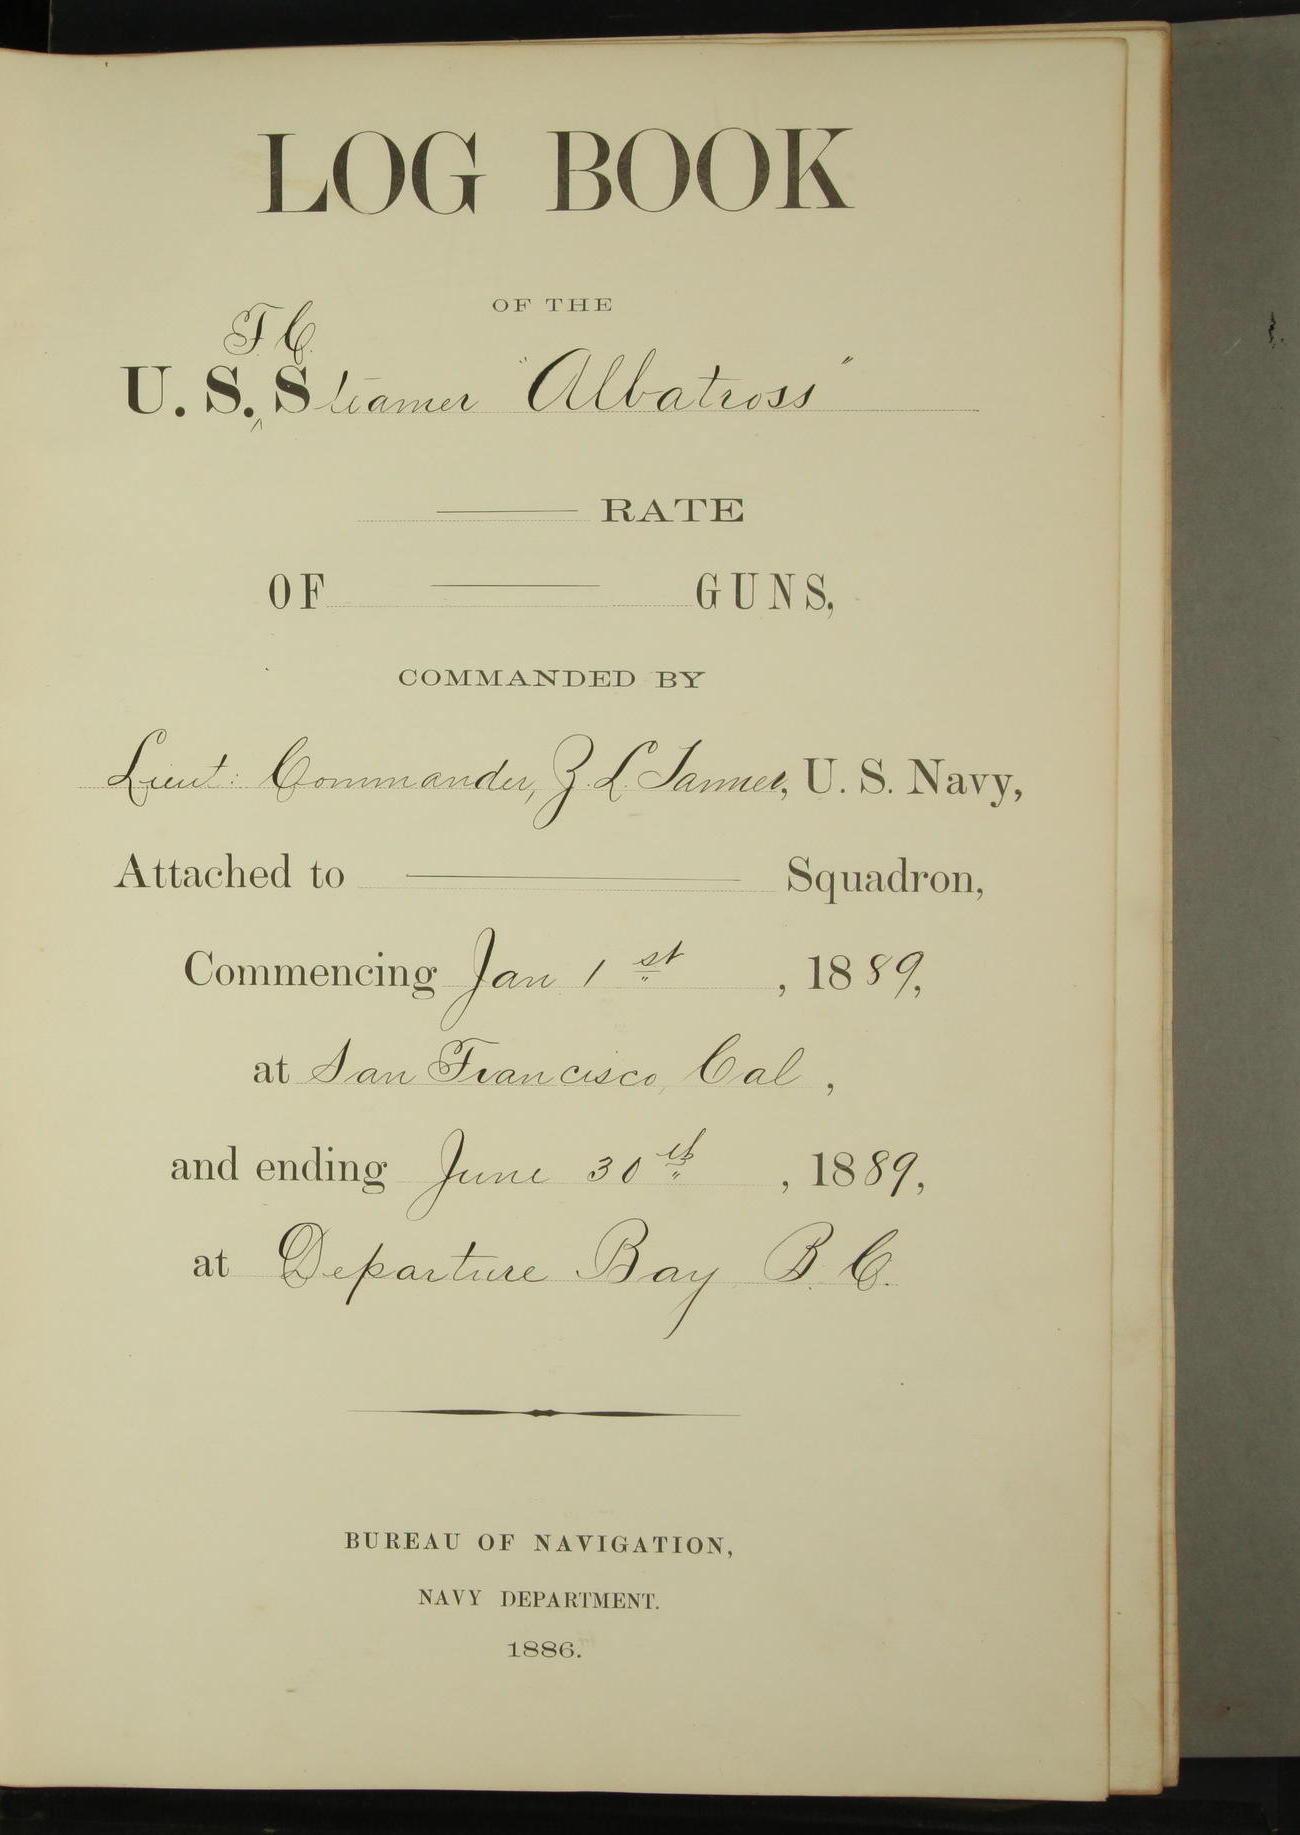 LOG BOOK
OF THE
F. C.
U. S. ^ Steamer "Albatross"
RATE
OF GUNS,
COMMANDED BY
Lieut: Commander, Z. L. Tanner, U. S. Navy,
Attached to Squadron,
Commencing Jan 1st, 1889,
at San Francisco, Cal,
and ending June 30th, 1889,
at Departure Bay B. C.
BUREAU OF NAVIGATION,
NAVY DEPARTMENT.
1886.